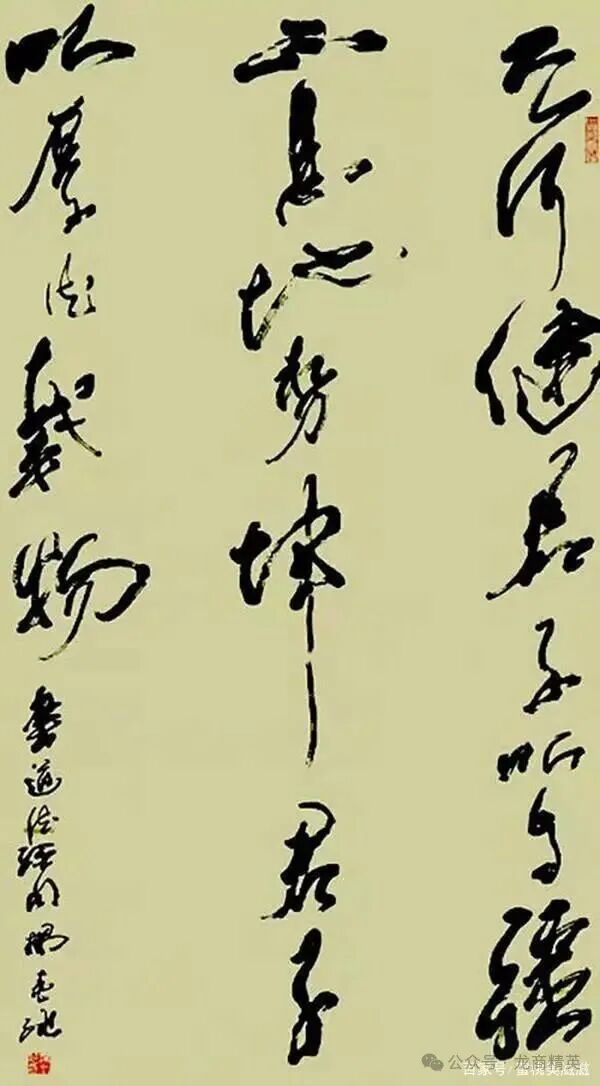 天行健君子以自彊
不息地势坤君子
以厚德載物
書道德經
公众号·龙商精英
百家号/